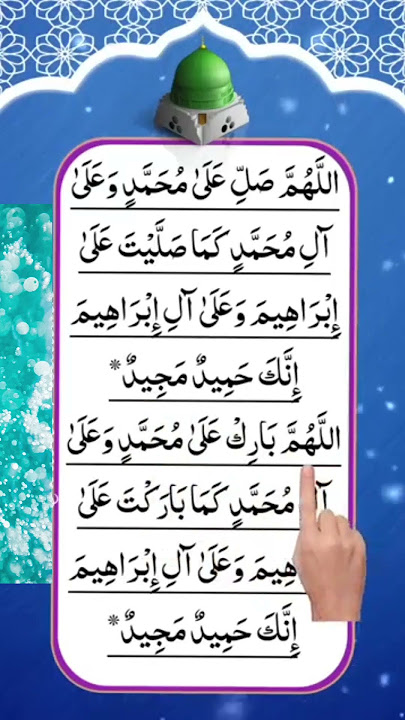 اللَّهُمَّ صَلِّ عَلَىٰ مُحَمَّدٍ وَعَلَىٰ
آلِ مُحَمَّدٍ كَمَا صَلَّيْتَ عَلَىٰ
إِبْرَاهِيمَ وَعَلَىٰ آلِ إِبْرَاهِيمَ
إِنَّكَ حَمِيدٌ مَجِيدٌ*
اللَّهُمَّ بَارِكْ عَلَىٰ مُحَمَّدٍ وَعَلَىٰ
آلِ مُحَمَّدٍ كَمَا بَارَكْتَ عَلَىٰ
وَعَلَىٰ آلِ إِبْرَاهِيمَ
إِنَّكَ حَمِيدٌ مَجِيدٌ*